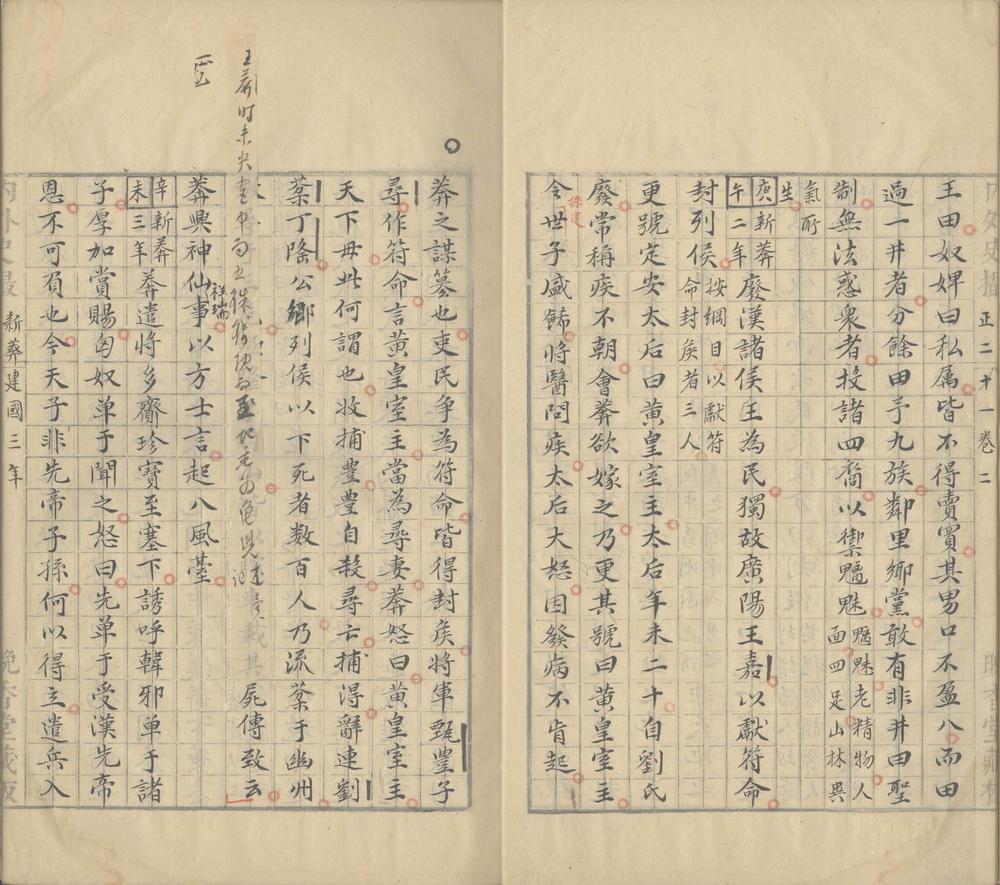 正二十一卷二
王田奴婢曰私属皆不得賣買其男口不盈八而田
過一井者分餘田予九族鄰里鄉黨敢有非井田聖
制無法惑衆者投諸四裔以禦魑魅
魑魅老精物人
面四足山林異
氣所
生
庚午
新莽
二年
廢漢諸侯王為民獨故廣陽王嘉以獻符命
封列侯
按綱目以獻符
命封侯者三人
更號定安太后曰黄皇室主太后年未二十自劉氏
廢常稱疾不朝會莽欲嫁之乃更其號曰黄皇室主
令
孫建
世子盛飾將醫問疾太后大怒因發病不肯起
莽之謀篡也吏民争為符命皆得封侯將軍甄豐子
尋作符命言黄皇室主當為尋妻莽怒曰黄皇室主
天下母此何謂也收捕豐豐自殺尋亡捕得辭連劉
棻丁隆公卿列侯以下死者数百人乃流棻于幽州
王莽時未央
屍傳致云
莽興神仙事
祥瑞
以方士言起八風臺
辛未
新莽
三年
莽遣將多齎珍寶至塞下誘呼韓邪单于諸
子厚加賞賜匈奴单于聞之怒曰先单于受漢先帝
恩不可負也今天子非先帝子孫何以得立遣兵入
新莽建國三年